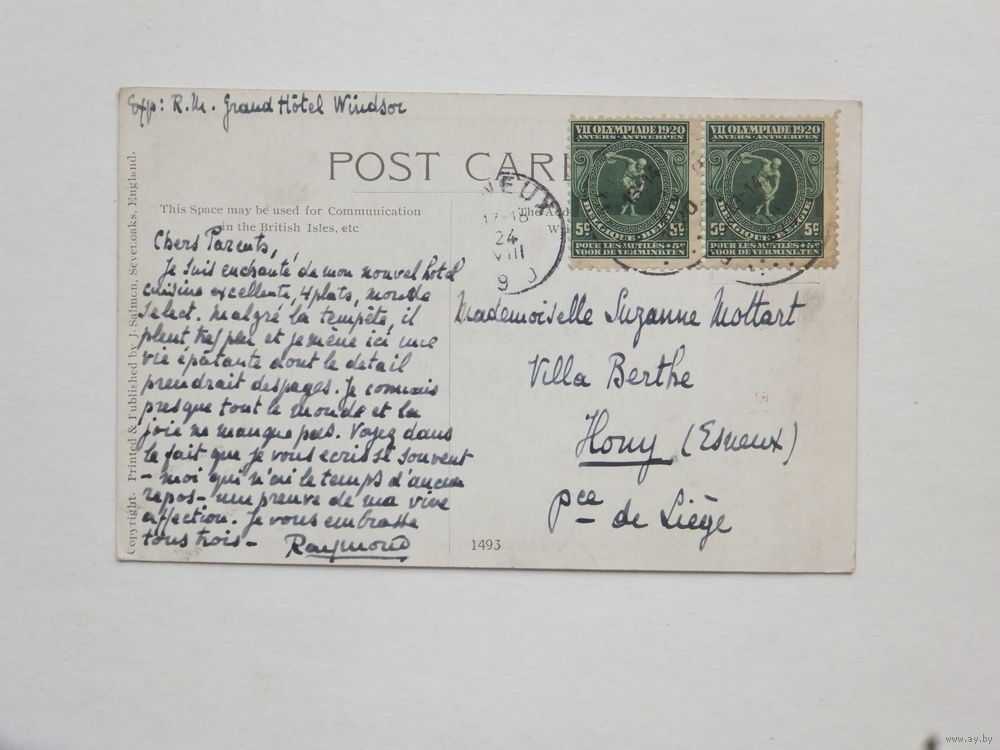 Exp: R.M. Grand Hôtel Windsor
POST CAR
This Space may be used for Communication
in the British Isles, etc
The Add
W
Chers Parents,
Je suis enchanté de mon nouvel hotel
cuisine excellente, 4 plats, monde
select. Malgré la tempête, il
pleut très peu et je mène ici une
vie épatante dont le detail
prendrait des pages. Je connais
presque tout le monde et la
joie ne manque pas. Voyez dans
le fait que je vous écris si souvent
- moi qui n'ai le temps d'aucun
repos - une preuve de ma vive
affection. Je vous embrasse
tous trois - Raymond
Copyright. Printed & Published by J. Salmon, Sevenoaks, England.
1493
VII OLYMPIADE 1920
ANVERS-ANTWERPEN
BELGIQUE·BELGIE
5c 5c
POUR LES MUTILÉS+5c
VOOR DE VERMINKTEN
VII OLYMPIADE 1920
ANVERS-ANTWERPEN
BELGIQUE·BELGIE
5c 5c
POUR LES MUTILÉS+5c
VOOR DE VERMINKTEN
NEUX
17-18
24
VIII
9 0
Mademoiselle Suzanne Mottart
Villa Berthe
Hony (Esneux)
Pce de Liège
www.ay.by